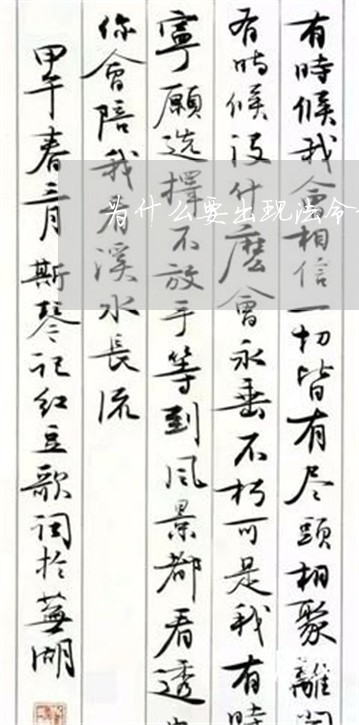 有時候我會相信一切皆有尽頭相聚離開
有時候没什麽會永垂不朽可是我有時
寧願选擇不放手等到风景都看透
你會陪我看溪水長流
甲午春三月斯琴记红豆歌词於蕪湖
为什么要出现法令